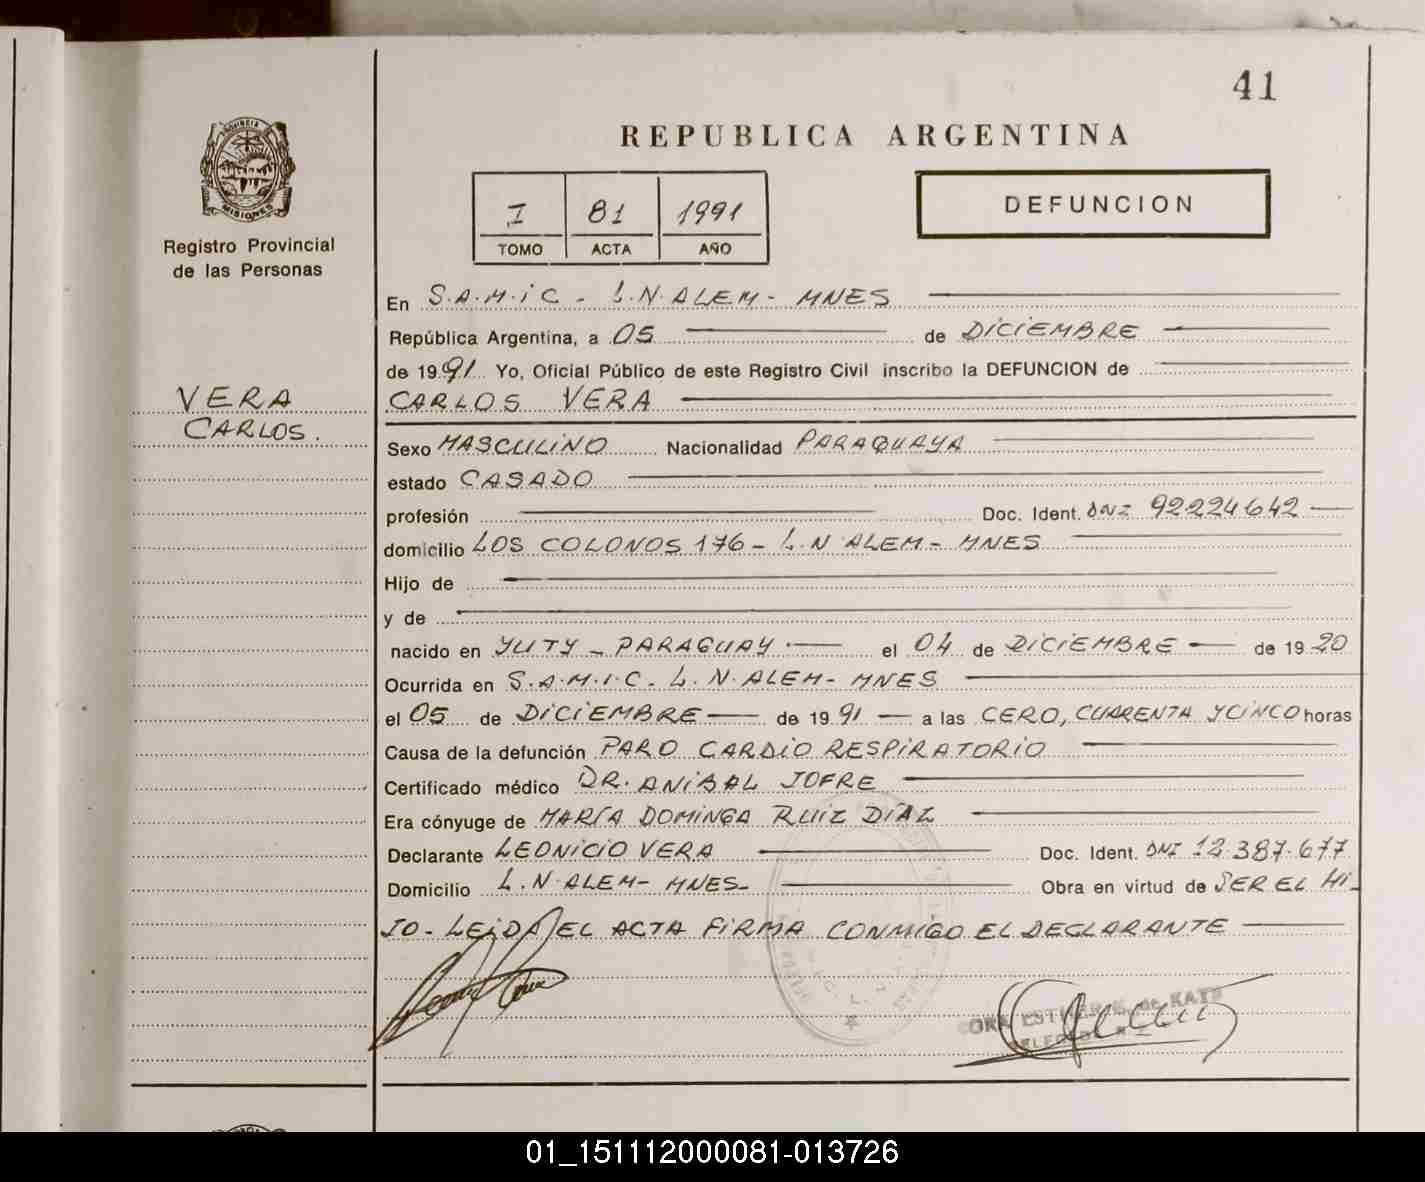 41
REPUBLICA ARGENTINA
PROVINCIA DE
MISIONES
Registro Provincial
de las Personas
I 81 1991
TOMO ACTA AÑO
DEFUNCION
VERA
CARLOS.
En S.A.M.i C. - L.N. ALEM - MNES
República Argentina, a 05 de DiCiEMBRE
de 1991 Yo, Oficial Público de este Registro Civil inscribo la DEFUNCION de
CARLOS VERA
Sexo MASCULiNO Nacionalidad PARAQUAYA
estado CASADO
profesión Doc. Ident. DNI 92224642
domicilio LOS COLONOS 176 - L.N ALEM - MNES
Hijo de
y de
nacido en YUTY - PARAGUAY el 04 de DiCiEMBRE de 1920
Ocurrida en S.A.M.I.C. L. N. ALEM - MNES
el 05 de DiCiEMBRE de 1991 a las CERO, CUARENTA Y CiNCO horas
Causa de la defunción PARO CARDiO RESPiRATORiO
Certificado médico DR. ANiBAL JOFRE
Era cónyuge de MARÍA DOMiNGA RUiZ DÍAZ
Declarante LEONiCiO VERA Doc. Ident. DNI 12.387.677
Domicilio L. N ALEM - MNES - Obra en virtud de SER EL Hi-
JO - LEiDA EL ACTA FiRMA CONMiGO EL DECLARANTE
ESTHER de KATZ
01_151112000081-013726